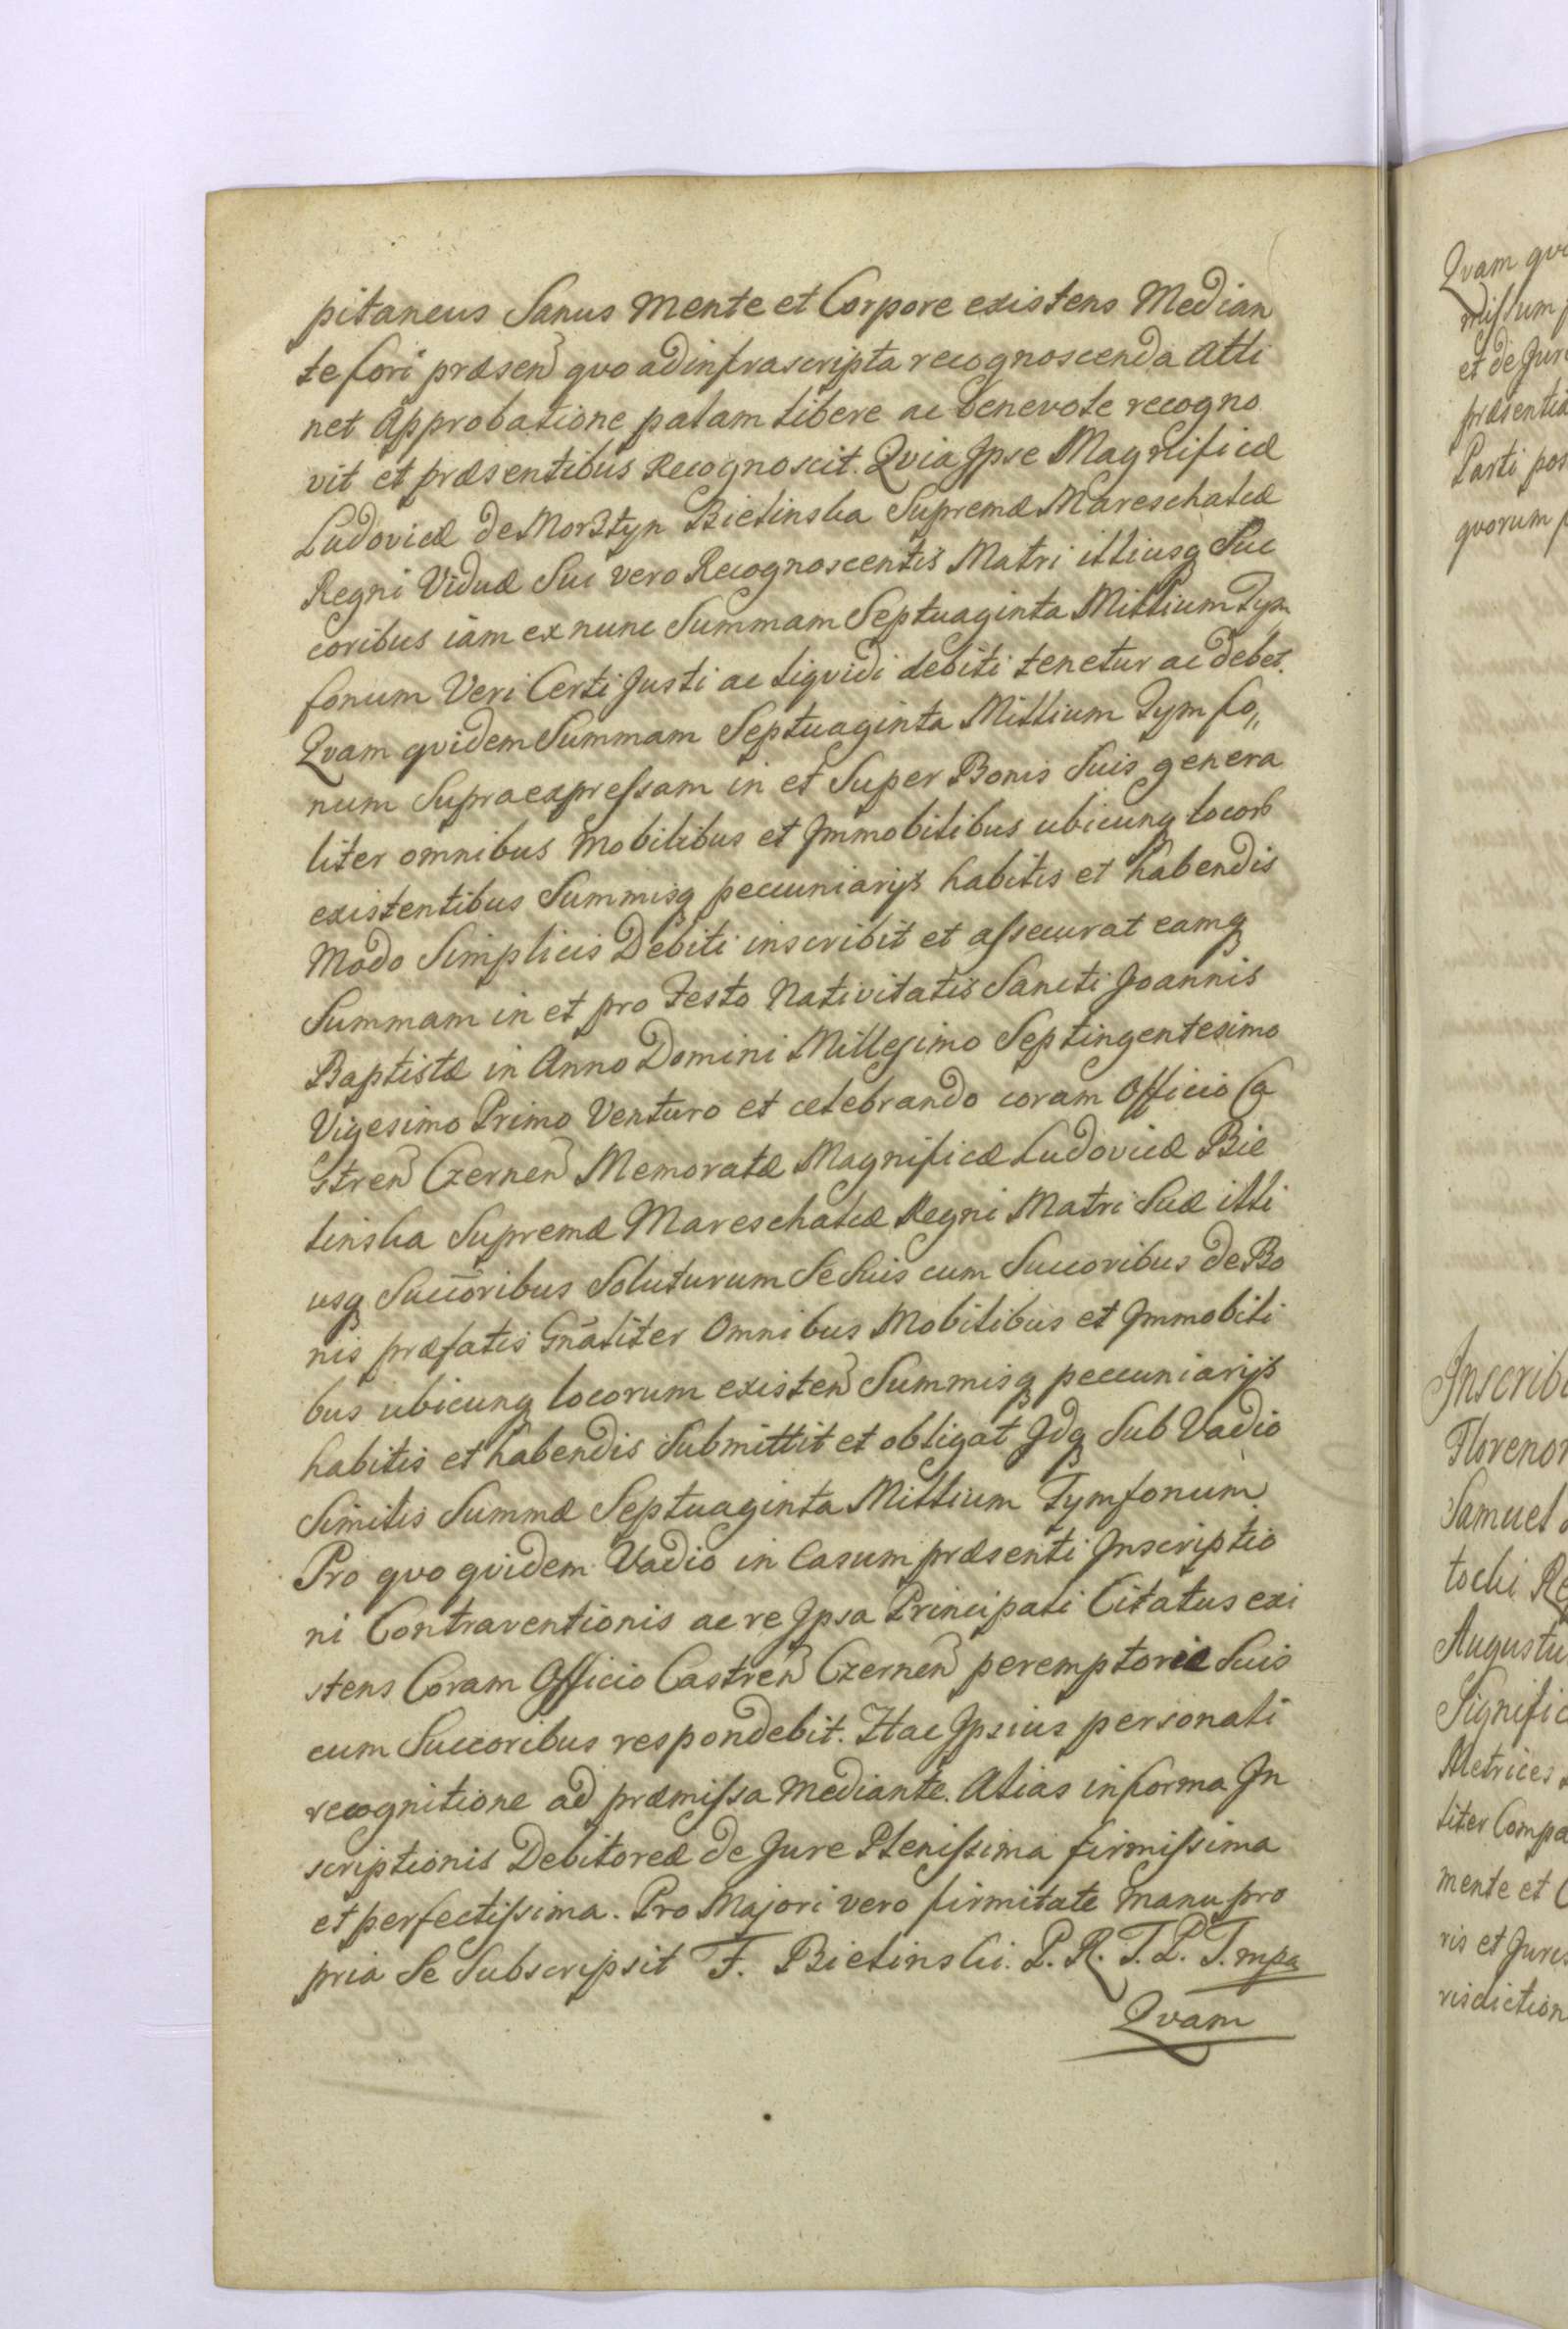 pitaneus Sanus Mente et Corpore existens Median
te fori præsen quo ad infrascripta recognoscenda Atti
net Approbatione palam libere ac benevole recogno
vit et præsentibus Recognoscit. Qvia Jpse Magnificæ
Ludovicæ de Morsztyn Bielinska Supremæ Mareschalcæ
Regni Viduæ Sui vero Recognoscentis Matri illiusq Suc
coribus iam ex nunc Summam Septuaginta Millium Tym
fonum Veri Certi Justi ac liqvidi debiti tenetur ac debet.
Qvam qvidem Summam Septuaginta Millium Tymfo„
num Supraexpressam in et Super Bonis Suis genera
liter omnibus Mobilibus et Jmmobilibus ubicunq locorb
existentibus Summisq pecuniarijs habitis et habendis
Modo Simplicis Debiti inscribit et assecurat eamq
Summam in et pro Festo Nativitatis Sancti Joannis
Baptistæ in Anno Domini Millesimo Septingentesimo
Vigesimo Primo Venturo et celebrando coram Officio Ca
stren Czernen Memoratæ Magnificæ Ludovicæ Bie
linska Supremæ Mareschalcæ Regni Matri Suæ illi
usq Succoribus Soluturum Se Suis cum Succoribus de Bo
nis præfatis Gnaliter Omnibus Mobilibus et Jmmobili
bus ubicunq locorum existen Summisq pecuniarijs
habitis et habendis Submittit et obligat Jdq Sub Vadio
Similis Summæ Septuaginta Millium Tymfonum
Pro qvo qvidem Vadio in Casum præsenti Jnscriptio
ni Contraventionis ac re Jpsa Principali Citatus exi
stens Coram Officio Castren Czernen peremptorie Suis
cum Succoribus respondebit. Hac Jpsius personali
recognitione ad præmissa Mediante. Alias in forma Jn
scriptionis Debitoreæ de Jure Plenissima firmissima
et perfectissima. Pro Majori vero firmitate manu pro
pria Se Subscripsit F. Bielinski. P. R. T. P. T. mpa
Qvam
Qvam qvi
missum
et de Jur
præsentia
Parti pos
qvorum
Jnscrib
Florenor
Samuel
tocki Re
Augustu
Signific
Metrices
liter Compa
mente et C
ris et Juris
risdiction